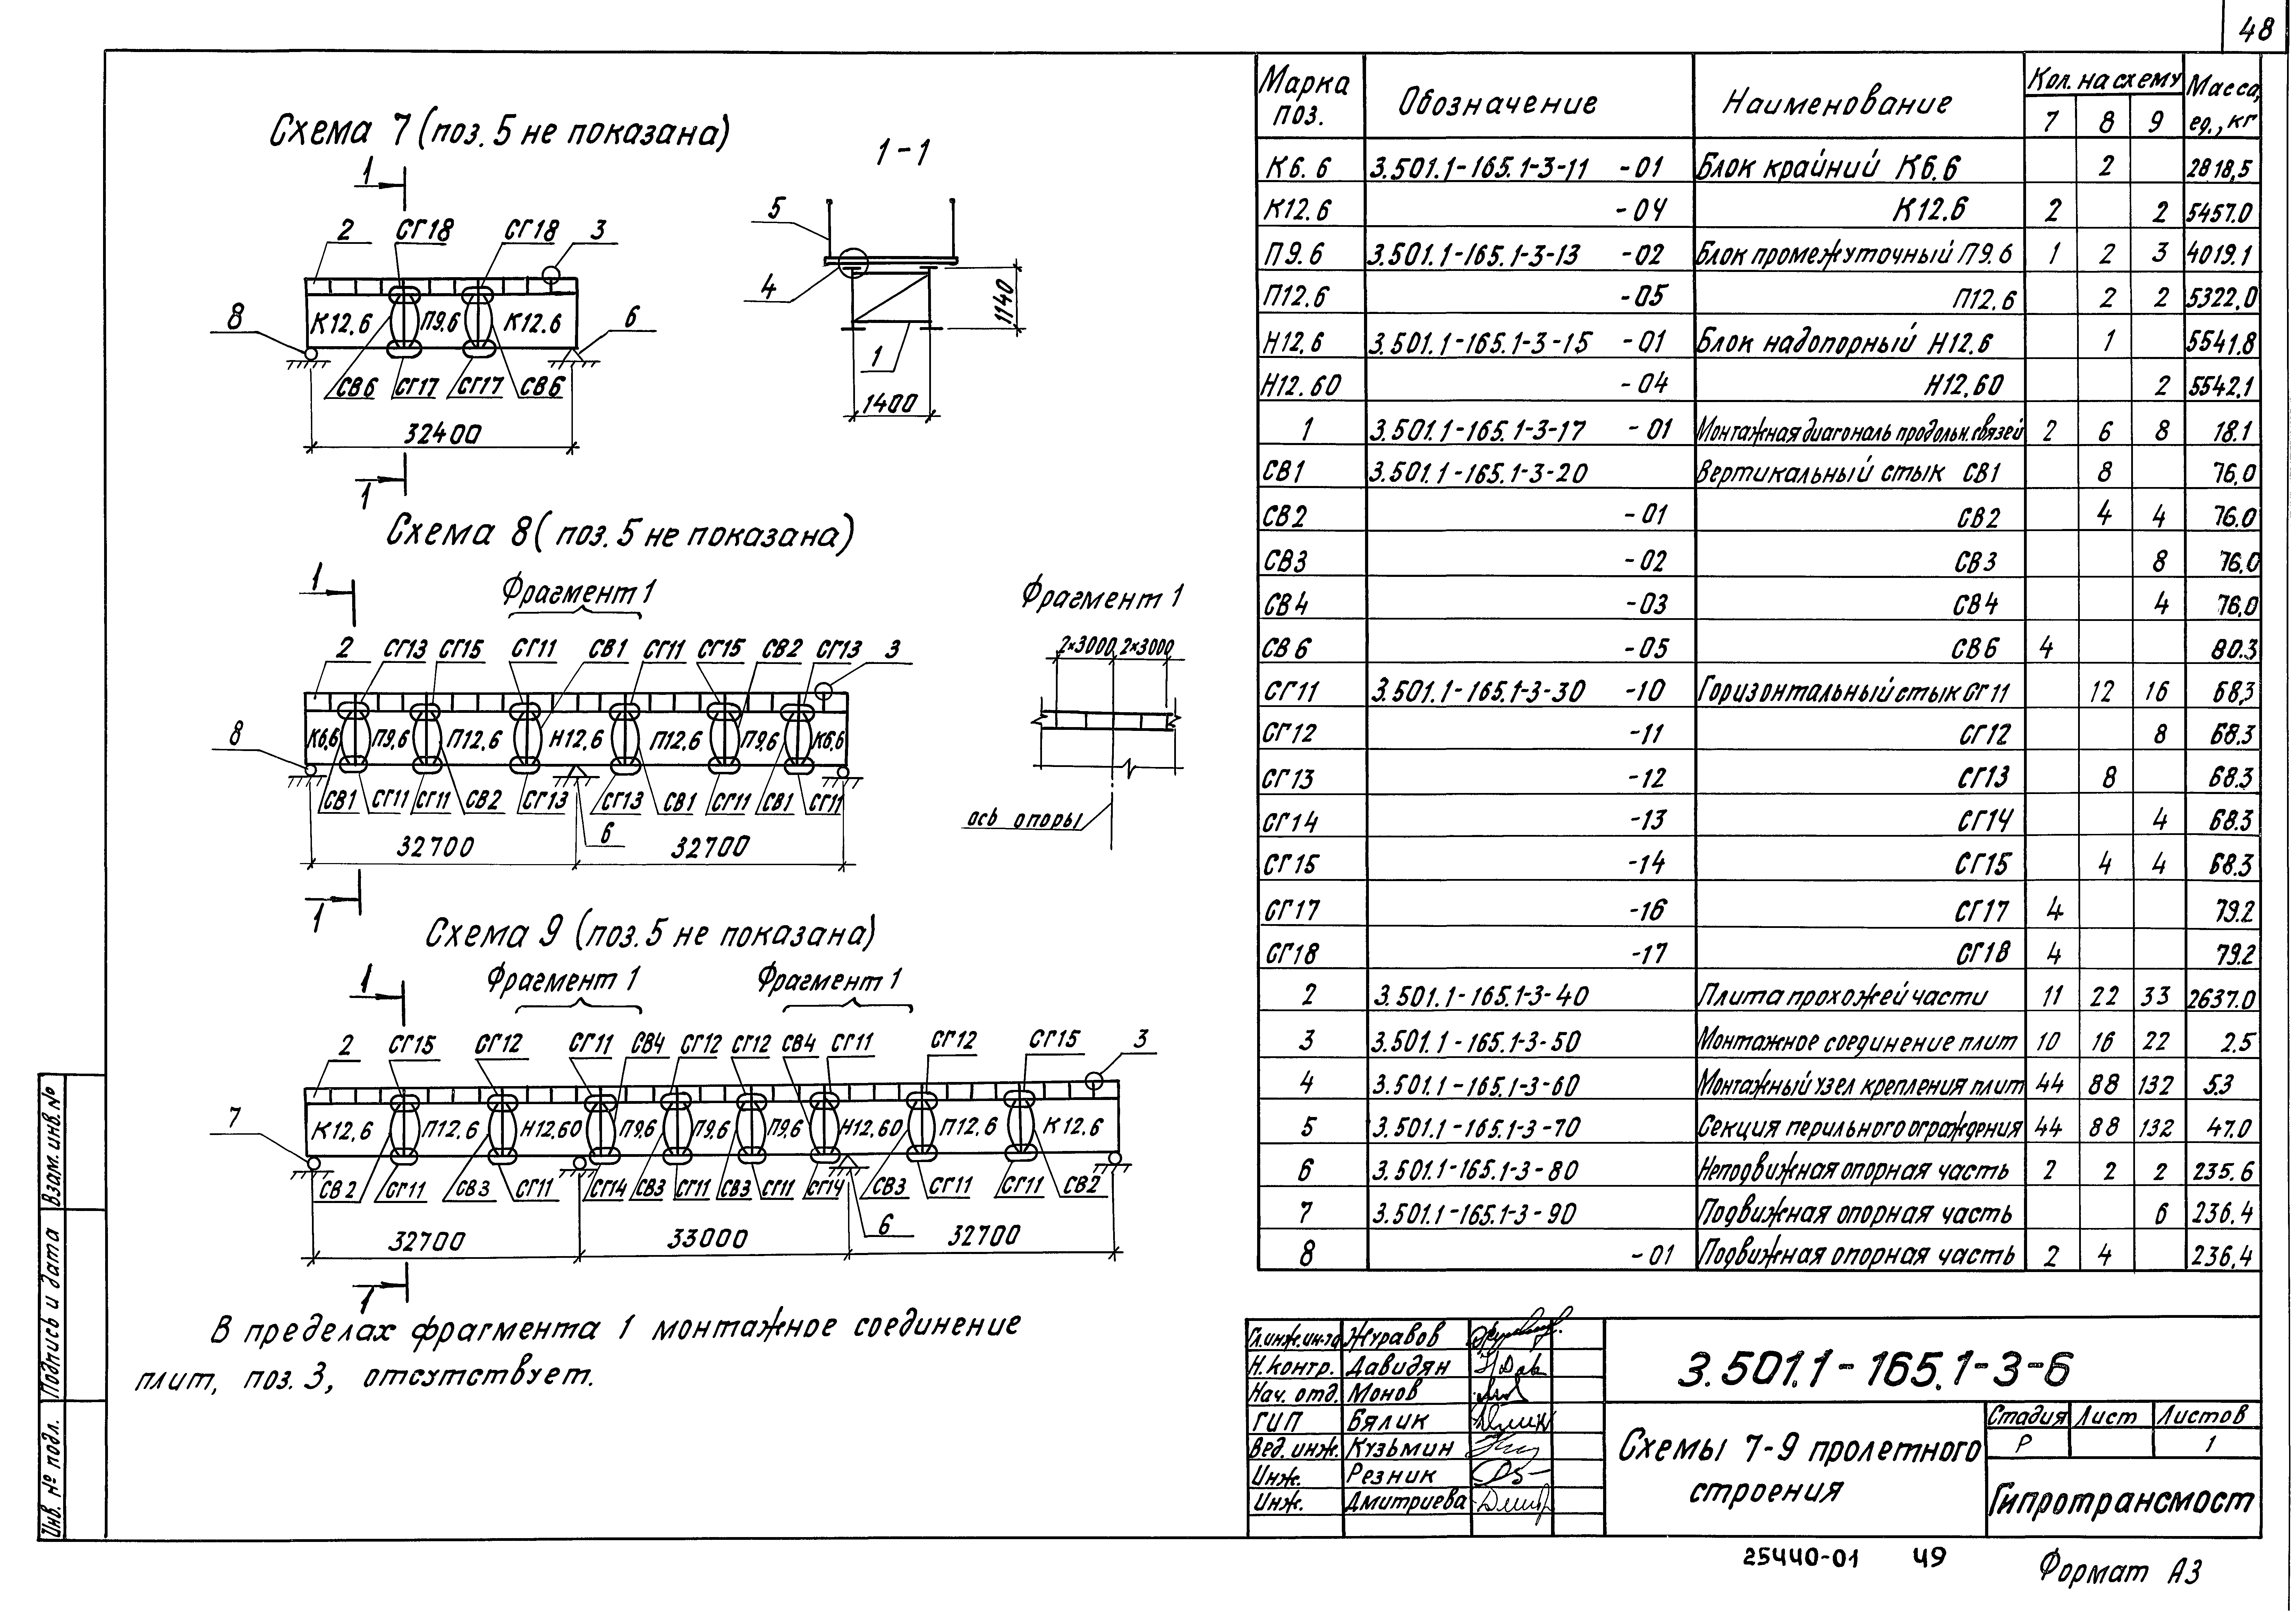 48
Схема 7 (поз. 5 не показана)
1
2 СГ18 СГ18 3
К12.6 П9.6 К12.6
8 6
СВ6 СГ17 СГ17 СВ6
32400
1
1-1
5
4
1
1140
1400
Схема 8 (поз. 5 не показана)
1
Фрагмент 1
2 СГ13 СГ15 СГ11 СВ1 СГ11 СГ15 СВ2 СГ13 3
8
К6.6 П9.6 П12.6 Н12.6 П12.6 П9.6 К6.6
СВ1 СГ11 СГ11 СВ2 СГ13 СГ13 СВ1 СГ11 СВ1 СГ11
6
32700 32700
1
Фрагмент 1
2×3000 2×3000
ось опоры
Схема 9 (поз. 5 не показана)
1
Фрагмент 1 Фрагмент 1
2 СГ15 СГ12 СГ11 СВ4 СГ12 СГ12 СВ4 СГ11 СГ12 СГ15 3
7
К12.6 П12.6 Н12.60 П9.6 П9.6 П9.6 Н12.60 П12.6 К12.6
СВ2 СГ11 СВ3 СГ11 СГ14 СВ3 СГ11 СВ3 СГ11 СГ14 СВ3 СГ11 СГ11 СВ2
6
32700 33000 32700
1
В пределах фрагмента 1 монтажное соединение
плит, поз. 3, отсутствует.
Марка поз. Обозначение Наименование Кол. на схему Масса, ед., кг
7 8 9
К6.6 3.501.1-165.1-3-11 -01 Блок крайний К6.6 2 2818,5
К12.6 -04 К12.6 2 2 5457.0
П9.6 3.501.1-165.1-3-13 -02 Блок промежуточный П9.6 1 2 3 4019.1
П12.6 -05 П12.6 2 2 5322.0
Н12.6 3.501.1-165.1-3-15 -01 Блок надопорный Н12.6 1 5541.8
Н12.60 -04 Н12.60 2 5542.1
1 3.501.1-165.1-3-17 -01 Монтажная диагональ продольн. связей 2 6 8 18.1
СВ1 3.501.1-165.1-3-20 Вертикальный стык СВ1 8 76.0
СВ2 -01 СВ2 4 4 76.0
СВ3 -02 СВ3 8 76.0
СВ4 -03 СВ4 4 76.0
СВ6 -05 СВ6 4 80.3
СГ11 3.501.1-165.1-3-30 -10 Горизонтальный стык СГ11 12 16 68,3
СГ12 -11 СГ12 8 68.3
СГ13 -12 СГ13 8 68.3
СГ14 -13 СГ14 4 68.3
СГ15 -14 СГ15 4 4 68.3
СГ17 -16 СГ17 4 79.2
СГ18 -17 СГ18 4 79.2
2 3.501.1-165.1-3-40 Плита прохожей части 11 22 33 2637.0
3 3.501.1-165.1-3-50 Монтажное соединение плит 10 16 22 2.5
4 3.501.1-165.1-3-60 Монтажный узел крепления плит 44 88 132 5.3
5 3.501.1-165.1-3-70 Секция перильного ограждения 44 88 132 47.0
6 3.501.1-165.1-3-80 Неподвижная опорная часть 2 2 2 235.6
7 3.501.1-165.1-3-90 Подвижная опорная часть 6 236.4
8 -01 Подвижная опорная часть 2 4 236.4
Гл.инж.ин-та Журавов
Н.контр. Давидян
Нач. отд. Монов
ГИП Бялик
Вед. инж. Кузьмин
Инж. Резник
Инж. Дмитриева
3.501.1-165.1-3-6
Схемы 7-9 пролетного
строения
Стадия Лист Листов
Р 1
Гипротрансмост
25440-01 49
Формат А3
Взам. инв. №
Подпись и дата
Инв. № подл.